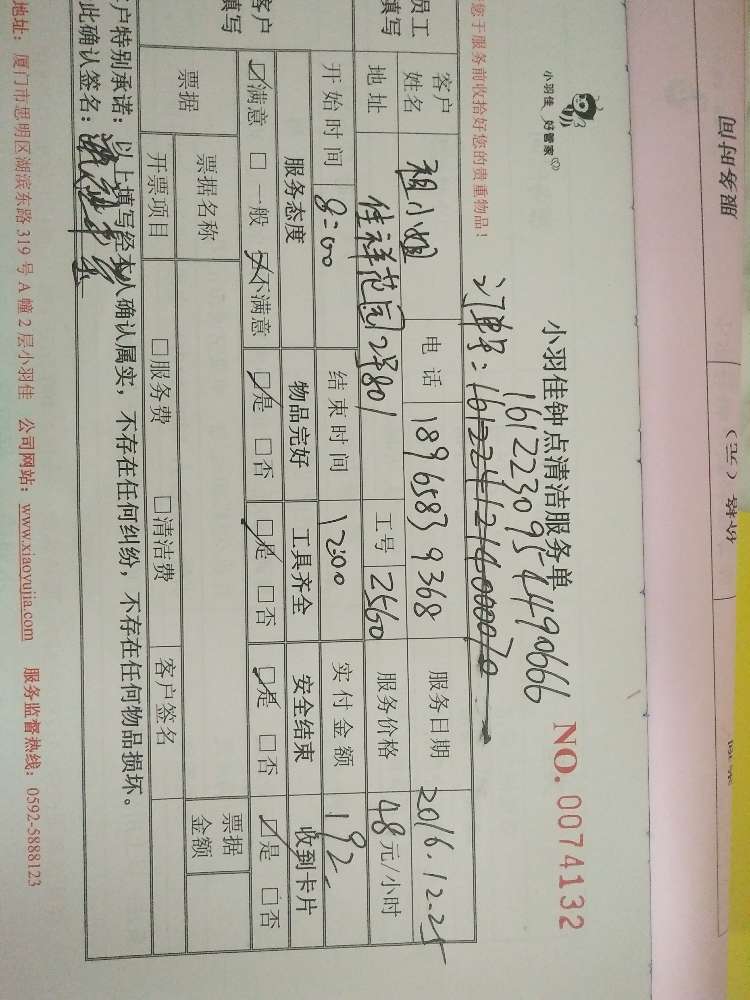 服务时间
小羽佳 好管家
小羽佳钟点清洁服务单
NO. 0074132
16122309544490666
订单号：1612241214000070
您于服务前收拾好您的贵重物品！
员工
填写
客户
姓名
祖小姐
电话
18965839368
服务日期
2016.12.25
地址
佳祥花园2号801
工号
2560
服务价格
48元/小时
开始时间
8:00
结束时间
12:00
实付金额
192
客户
填写
服务态度
物品完好
工具齐全
安全结束
收到卡片
☑满意 □一般 ☑不满意
☑是 □否
☑是 □否
☑是 □否
☑是 □否
票据
票据名称
票据
金额
开票项目
□服务费
□清洁费
客户签名
户特别承诺：以上填写经本人确认属实，不存在任何纠纷，不存在任何物品损坏。
此确认签名：
地址：厦门市思明区湖滨东路 319 号 A 幢 2 层小羽佳 公司网站：www.xiaoyujia.com 服务监督热线：0592-5888123